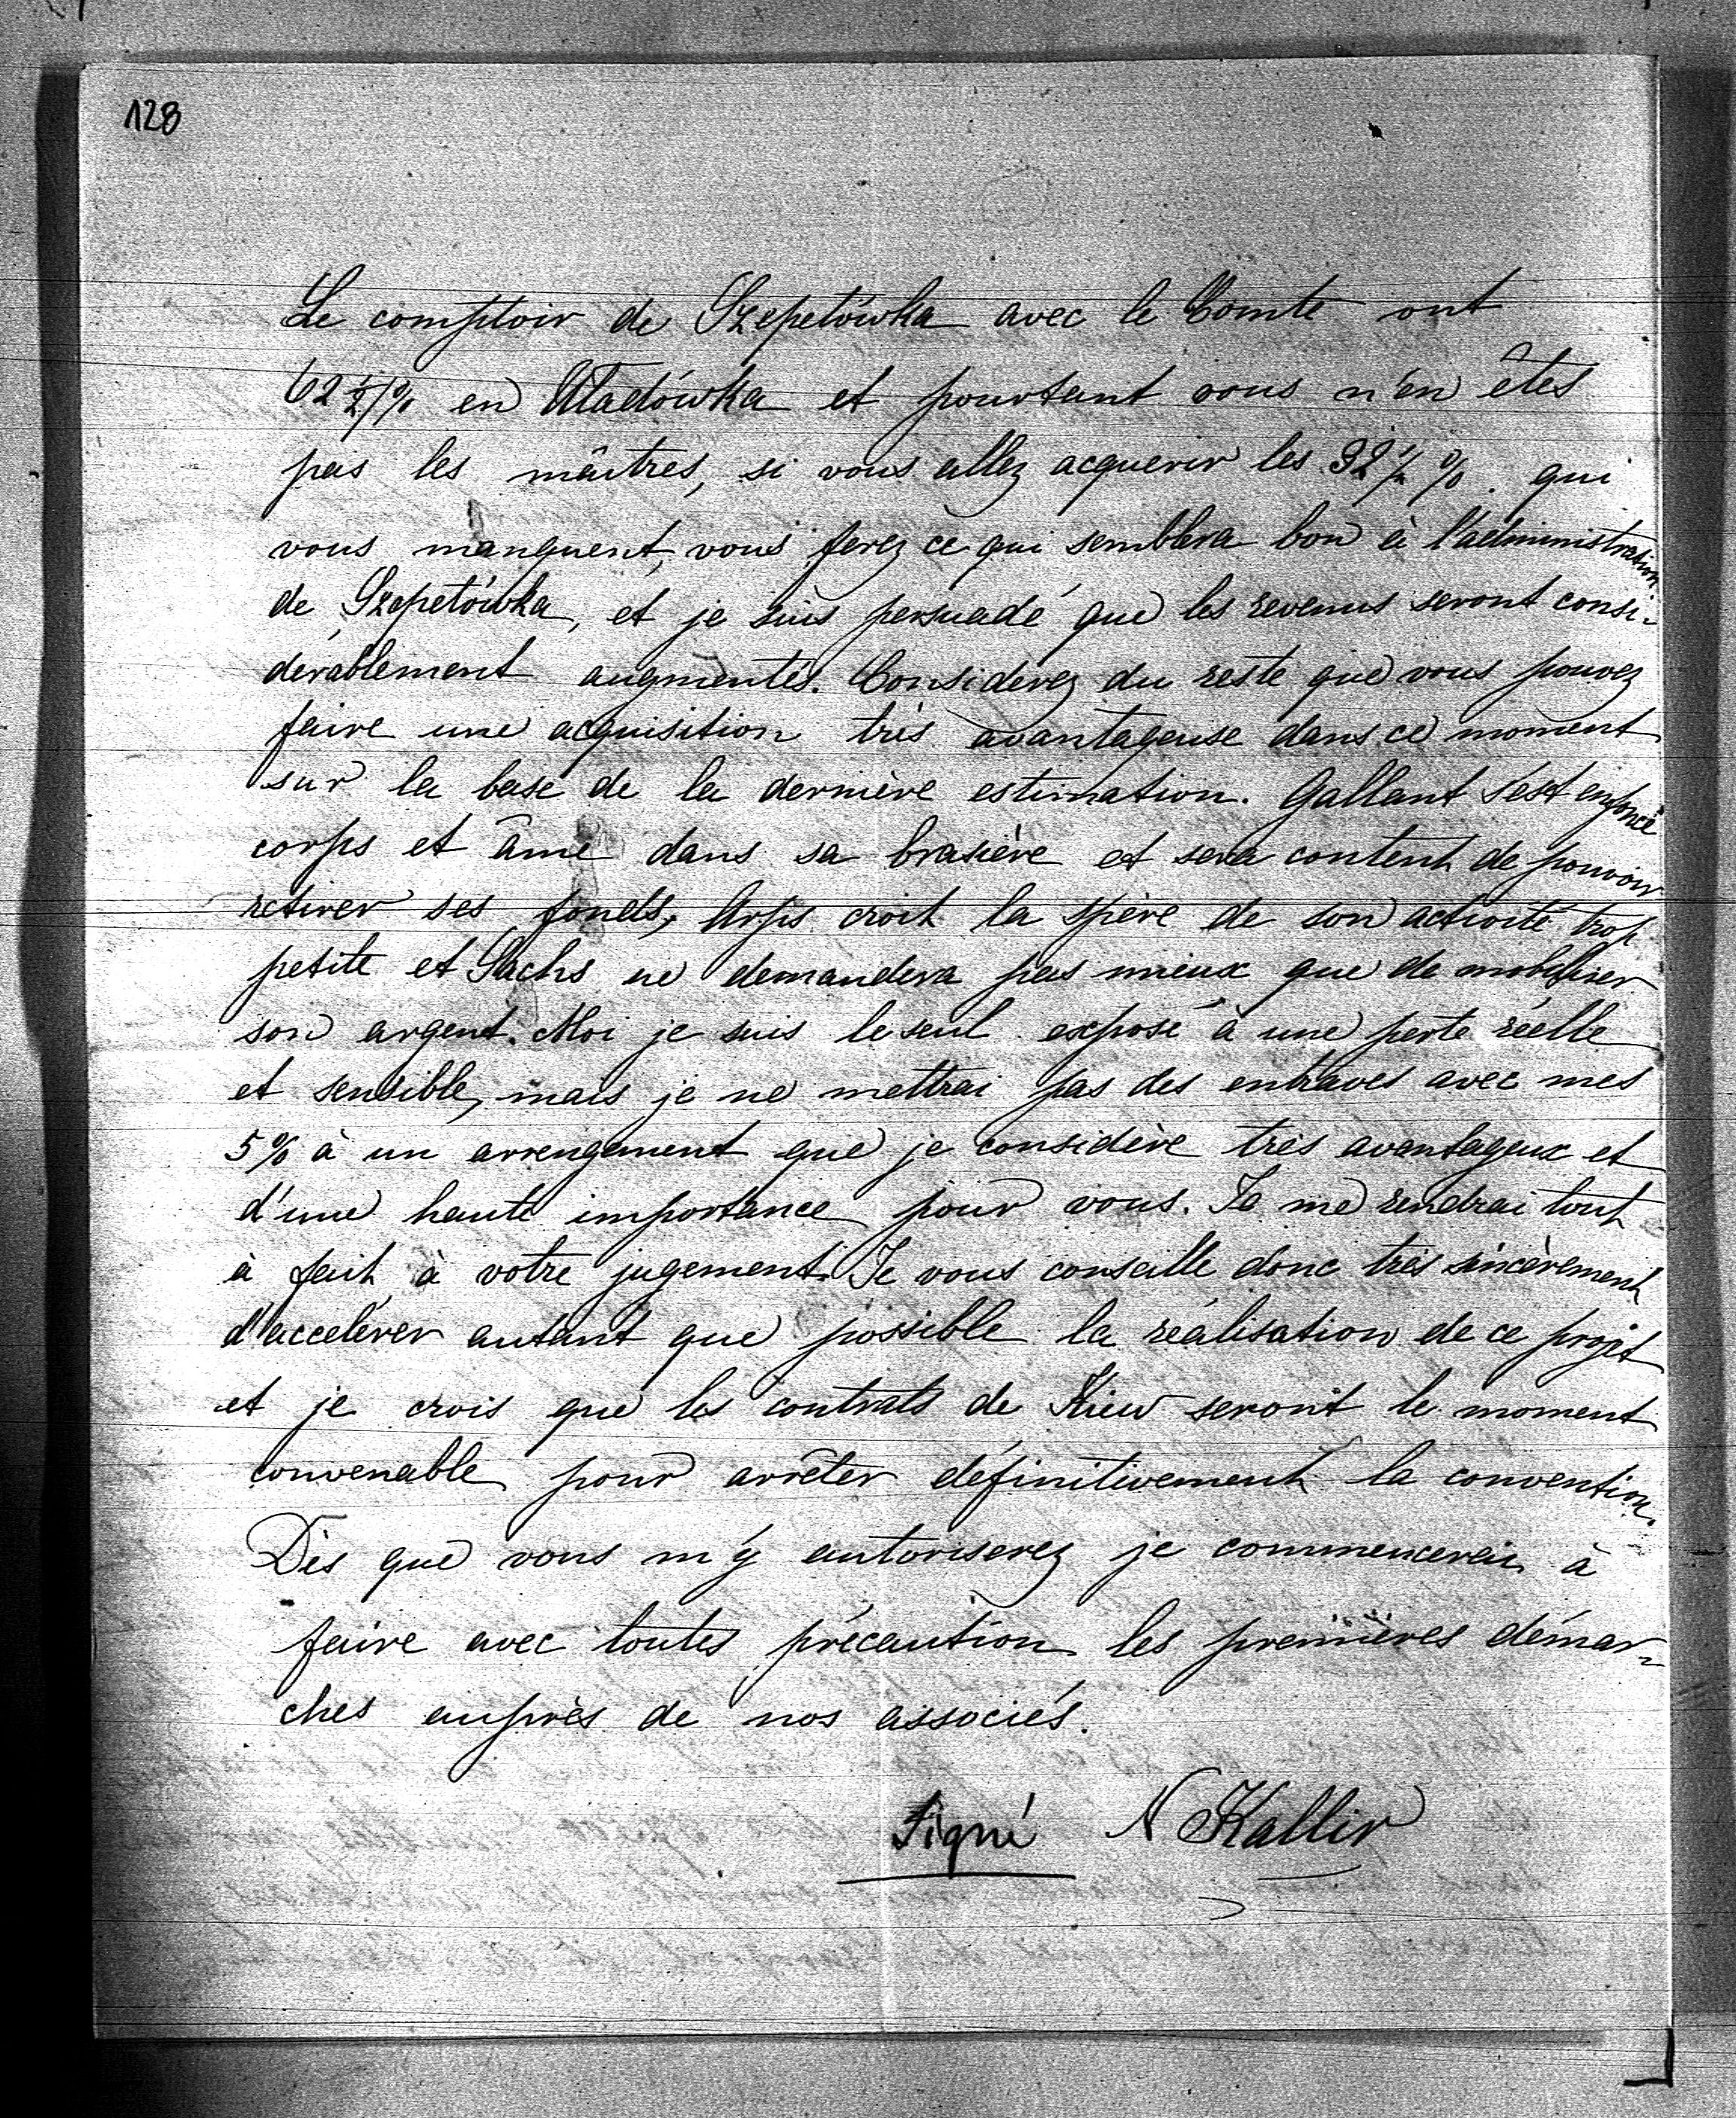 128
Le comptoir de Szepetówka avec le Comte ont
62½% en Uladówka et pourtant vous n'en êtes
pas les maîtres, si vous allez acquerir les 32½%. qui
vous manquent, vous ferez ce qui semblera bon à l'administration
de Szepetówka, et je suis persuadé que les revenus seront consi-
dérablement augmentés. Considerez du reste que vous pouvez
faire une acquisition très avantageuse dans ce moment
sur la base de la dernière estimation. Gallant s'est enfoncé
corps et âme dans sa brasière et sera content de pouvoir
retirer ses fonds, Arps croit la spère de son activité trop
petite et Sachs ne demandera pas mieux que de mobiliser
son argent. Moi je suis le seul exposé à une perte réelle
et sensible, mais je ne mettrai pas des entraves avec mes
5% à un arrengement que je considère très avantageux et
d'une haute importance pour vous. Je me rendrai tout
à fait à votre jugement. Je vous conseille donc très sincèrement
d'accelérer autant que possible la réalisation de ce projet
et je crois que les contrats de Kiew seront le moment
convenable pour arrêter définitivement la convention.
Dès que vous m'y autoriserez je commencerai à
faire avec toutes précaution les premières démar-
ches auprès de nos associés.
Signé N Kallir